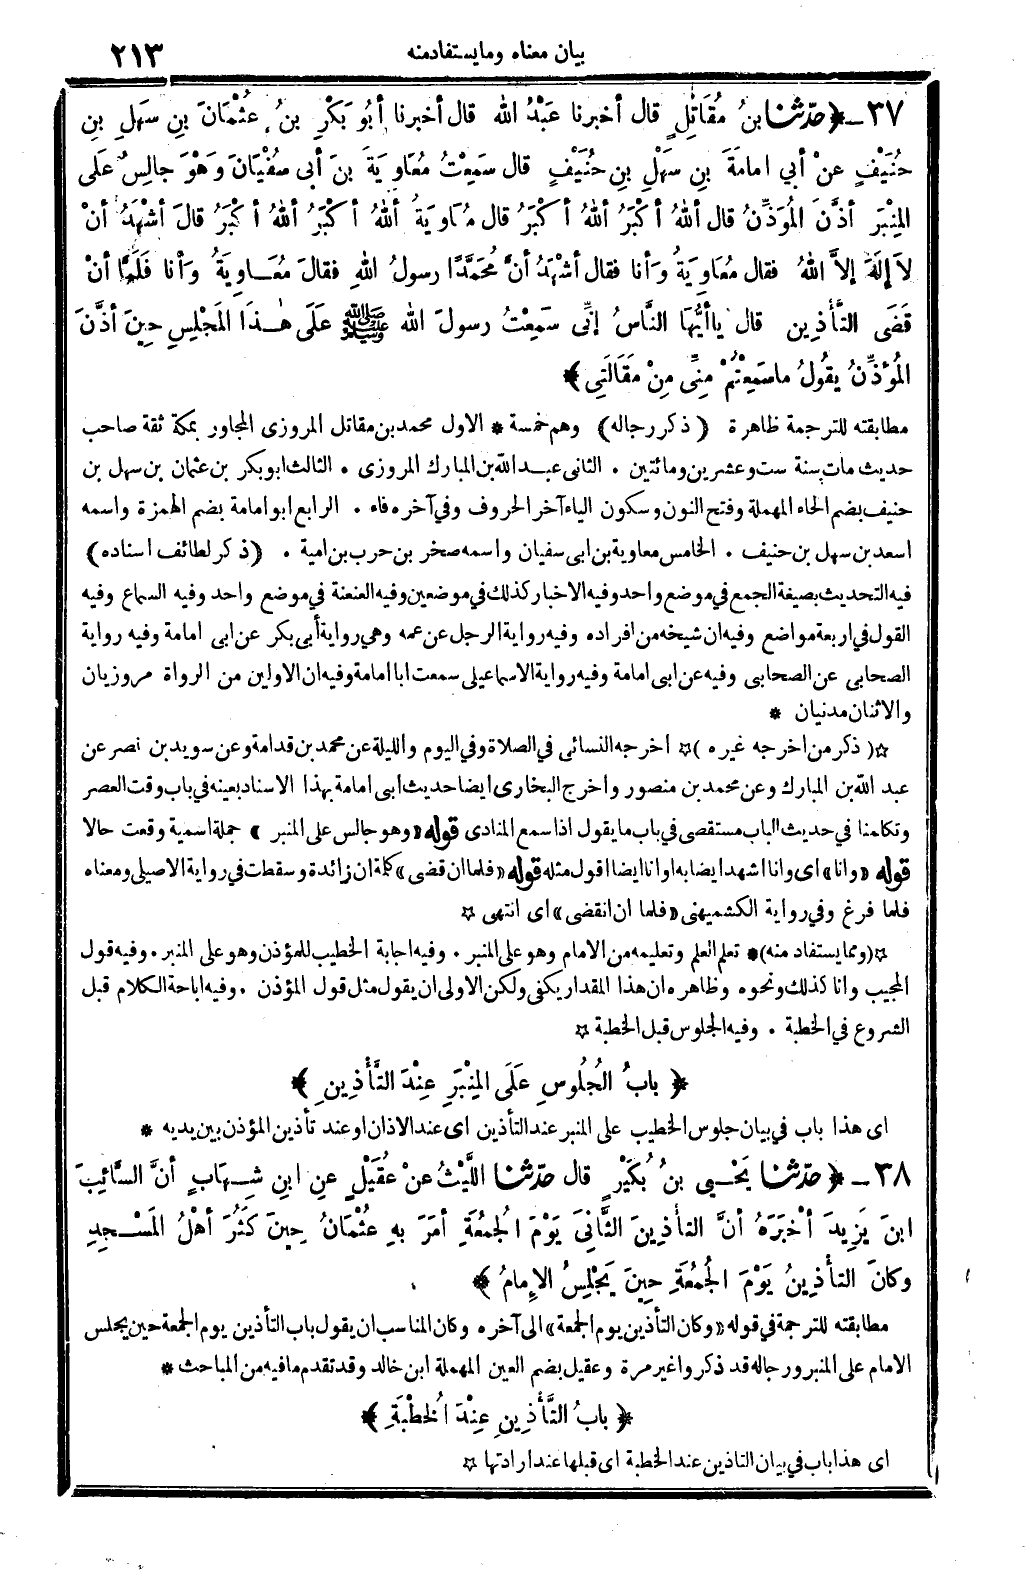 بيان معناه ومايستفادمنه
٢١٣
٣٧ ــ ﴿ حدّثنا ابنُ مُقَاتِلٍ قال أخبرنا عَبْدُ الله قال أخبرنا أبُو بَكْرِ بنُ عُثْمَانَ بنِ سَهْلِ بنِ
حُنَيْفٍ عنْ أبي امامَةَ بنِ سَهْلِ بنِ حُنَيْفٍ قال سَمِعْتُ مُعَاوِيَةَ بنَ أبى سفْيَانَ وَهْوَ جالِسٌ عَلَى
المِنْبَرِ أذَّنَ المُوَذِّنُ قال اللهُ أكْبَرُ اللهُ أكْبَرُ قال مُعَاوِيةُ اللهُ أكْبَرُ اللهُ أكْبَرُ قالَ أشْهَدُ أنْ
لاَ إلَهَ إلاَّ اللهُ فقال مُعَاوِيَةُ وَأنا فقال أشْهَدُ أنَّ مُحَمَّدًا رسولُ اللهِ فقالَ مُعَـاوِيَةُ وَأنا فَلَمَّا أنْ
قَضَى التَّأْذِين قال ياأيُّهَا النَّاسُ إنِّى سَمِعْتُ رسولَ الله ﷺ عَلَى هَـذَا المَجْلِسِ حِينَ أذَّنَ
المُؤذِّنُ يقُولُ ماسَمِعْتُمْ مِنِّى مِنْ مَقَالَتِى ﴾
مطابقته للترجمة ظاهرة (ذكر رجاله) وهم خمسة * الاول محمد بن مقاتل المروزى المجاور بمكة ثقة صاحب
حديث مات سنة ست وعشرين ومائتين . الثانى عبـد الله بن المبارك المروزى . الثالث ابو بكر بن عثمان بن سهل بن
حنيف بضم الحاء المهملة وفتح النون وسكون الياء آخر الحروف وفي آخره فاء . الرابع ابو امامة بضم الهمزة واسمه
اسعد بن سهل بن حنيف . الخامس معاوية بن ابى سفيان واسمه صخر بن حرب بن امية . (ذكر لطائف اسناده)
فيه التحديث بصيغة الجمع في موضع واحد وفيه الاخبار كذلك في موضعين وفيه العنعنة في موضع واحد وفيه السماع وفيه
القول في اربعة مواضع وفيه ان شيخه من افراده وفيه رواية الرجل عن عمه وهي رواية أبى بكر عن ابى امامة وفيه رواية
الصحابى عن الصحابى وفيه عن ابى امامة وفيه رواية الاسماعيلى سمعت ابا امامة وفيه ان الاولين من الرواة مروزيان
والاثنان مدنيان *
☆(ذكر من اخرجه غيره)☆ اخرجه النسائى في الصلاة وفي اليوم والليلة عن محمد بن قدامة وعن سويد بن نصر عن
عبد الله بن المبارك وعن محمد بن منصور واخرج البخارى ايضا حديث ابى امامة بهذا الاسناد بعينه في باب وقت العصر
وتكلمنا في حديث الباب مستقصى في باب ما يقول اذا سمع المنادى قوله «وهو جالس على المنبر» جملة اسمية وقعت حالا
قوله «وانا» اى وانا اشهد ايضا به او انا ايضا اقول مثله قوله «فلما ان قضى» كلمة ان زائدة وسقطت في رواية الاصيلى ومعناه
فلما فرغ وفي رواية الكشميهنى «فلما ان انقضى» اى انتهى ☆
☆(ومما يستفاد منه)* تعلم العلم وتعليمه من الامام وهو على المنبر . وفيه اجابة الخطيب للمؤذن وهو على المنبر . وفيه قول
المجيب وانا كذلك ونحوه وظاهره ان هذا المقدار يكفى ولكن الاولى ان يقول مثل قول المؤذن . وفيه اباحة الكلام قبل
الشروع في الخطبة . وفيه الجلوس قبل الخطبة ☆
﴿ بابُ الجُلُوسِ عَلَى المِنْبَرِ عِنْدَ التَّأْذِينِ ﴾
اى هذا باب في بيان جلوس الخطيب على المنبر عند التأذين اى عند الاذان او عند تأذين المؤذن بين يديه *
٣٨ ــ ﴿ حدّثنا يَحْـيى بنُ بُكَيْرٍ قال حدّثنا اللَّيْثُ عنْ عُقَيْلٍ عنِ ابنِ شِـهَابٍ أنَّ السَّائِبَ
ابنَ يَزِيدَ أخْبَرَهُ أنَّ التأذِينَ الثَّانِىَ يَوْمَ الجُمعَةِ أمَرَ بهِ عثْمَانُ حِينَ كَثُرَ أهْلُ المَسْـجِدِ
وكانَ التأْذِينُ يَوْمَ الجُمُعَةِ حِينَ يَجْلِسُ الإِمامُ ﴾
مطابقته للترجمة في قوله «وكان التأذين يوم الجمعة» الى آخره وكان المناسب ان يقول باب التأذين يوم الجمعة حين يجلس
الامام على المنبر ورجاله قد ذكروا غير مرة وعقيل بضم العين المهملة ابن خالد وقد تقدم ما فيه من المباحث *
﴿ بابُ التَّأْذِينِ عِنْدَ الخطْبَةِ ﴾
اى هذا باب في بيان التاذين عند الخطبة اى قبلها عند ارادتها ☆